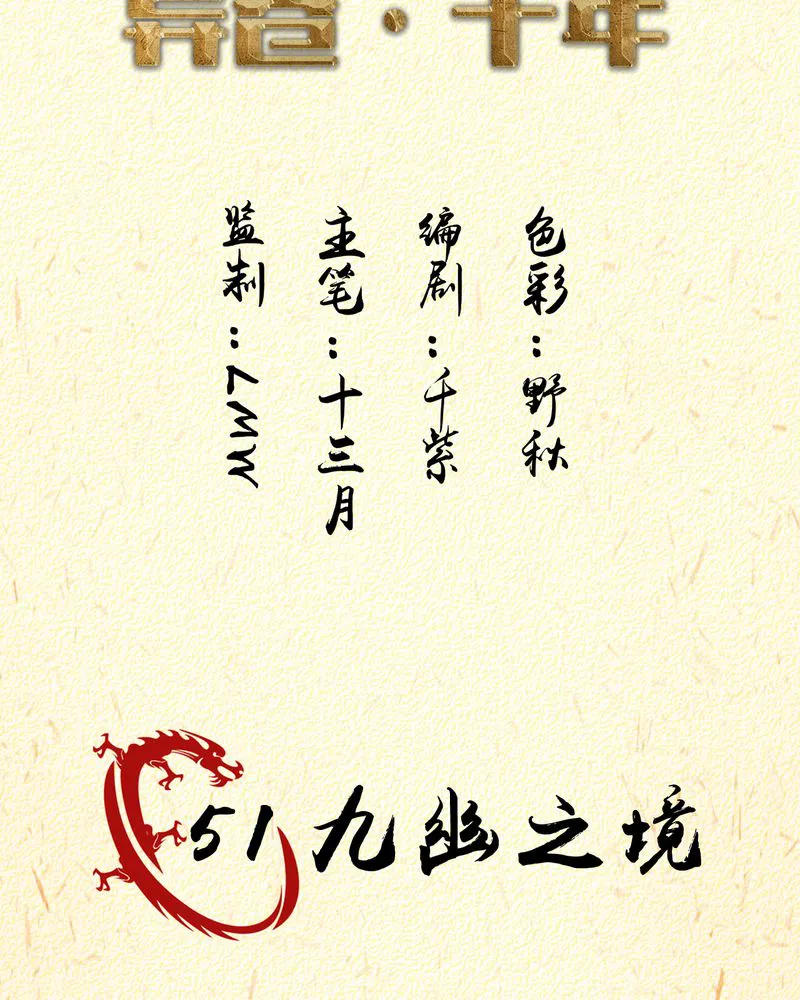 监制：
主笔：十三月
编剧：千紫
色彩：野秋
51 九幽之境